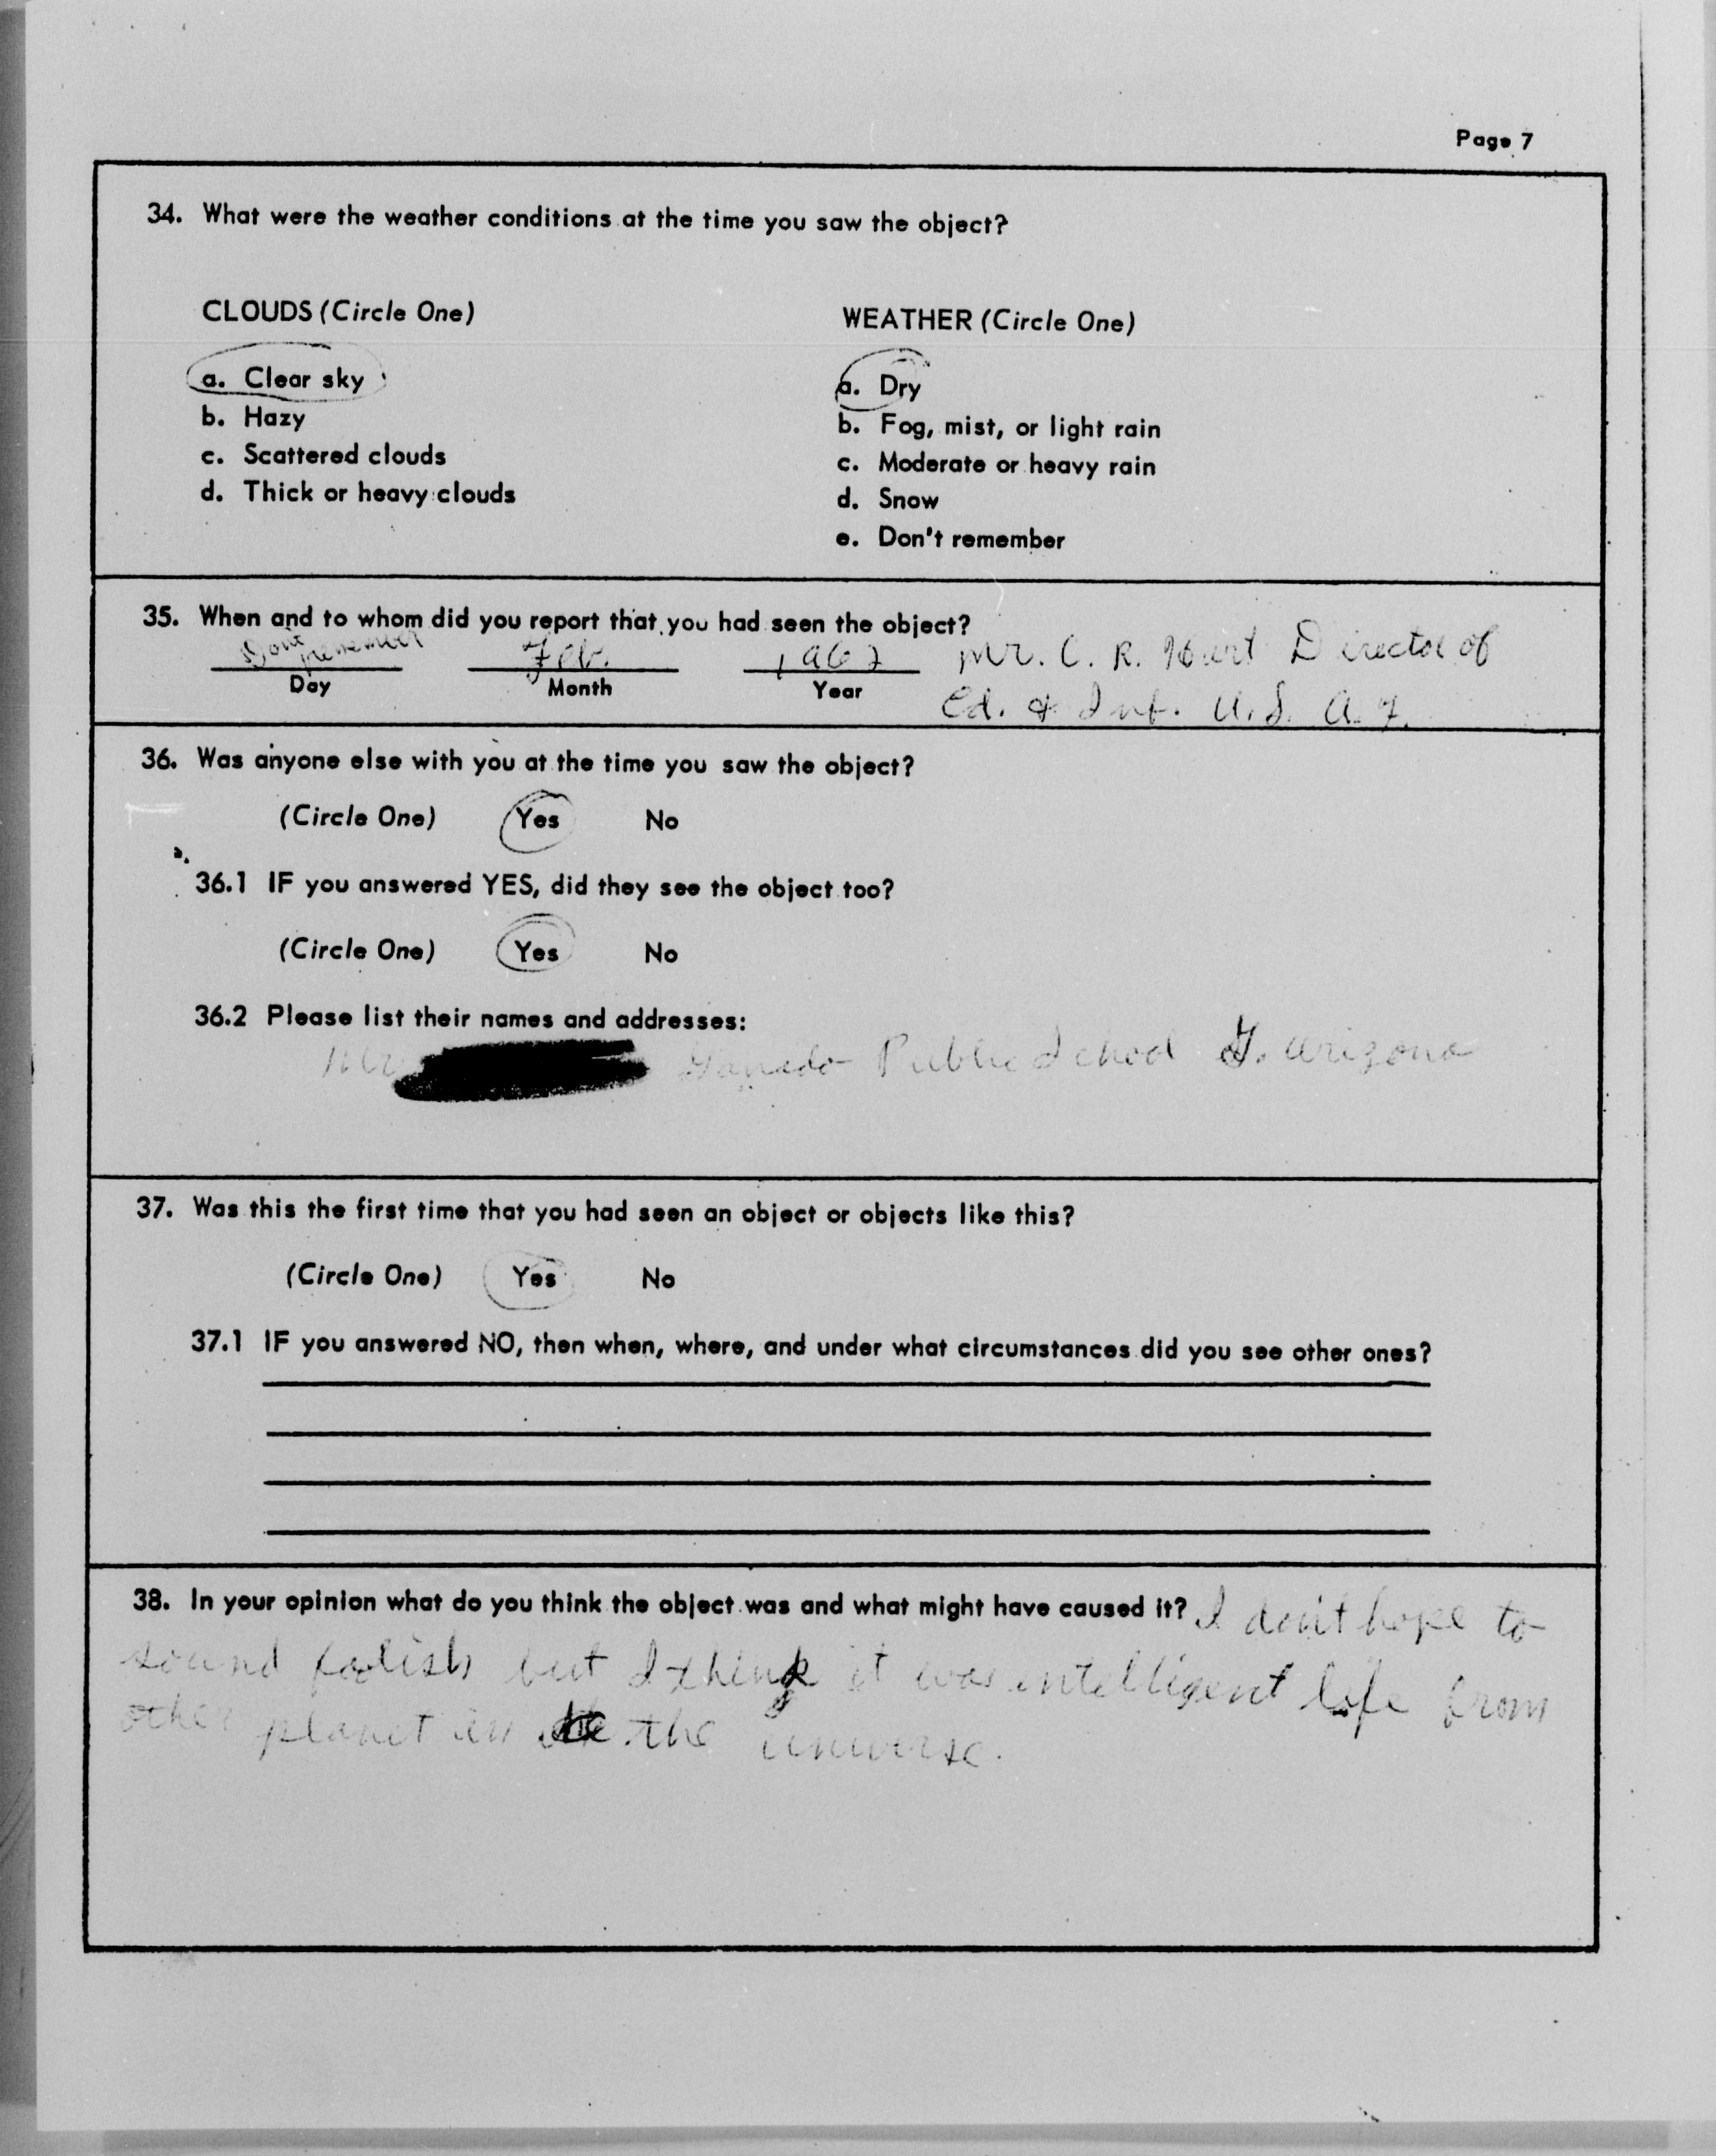 Page 7
34. What were the weather conditions at the time you saw the object?
CLOUDS (Circle One)
a. Clear sky
b. Hazy
c. Scattered clouds
d. Thick or heavy clouds
WEATHER (Circle One)
a. Dry
b. Fog, mist, or light rain
c. Moderate or heavy rain
d. Snow
e. Don't remember
35. When and to whom did you report that you had seen the object?
Don't remember Feb. 1967 Mr. C. R. Hart Director of
Day Month Year
Ed. & Inf. U.S. A.F.
36. Was anyone else with you at the time you saw the object?
(Circle One) Yes No
36.1 IF you answered YES, did they see the object too?
(Circle One) Yes No
36.2 Please list their names and addresses:
Mr Ganado Public School G. Arizona
37. Was this the first time that you had seen an object or objects like this?
(Circle One) Yes No
37.1 IF you answered NO, then when, where, and under what circumstances did you see other ones?
38. In your opinion what do you think the object was and what might have caused it? I don't hope to
sound foolish but I think it was intelligent life from
other planet in the universe.